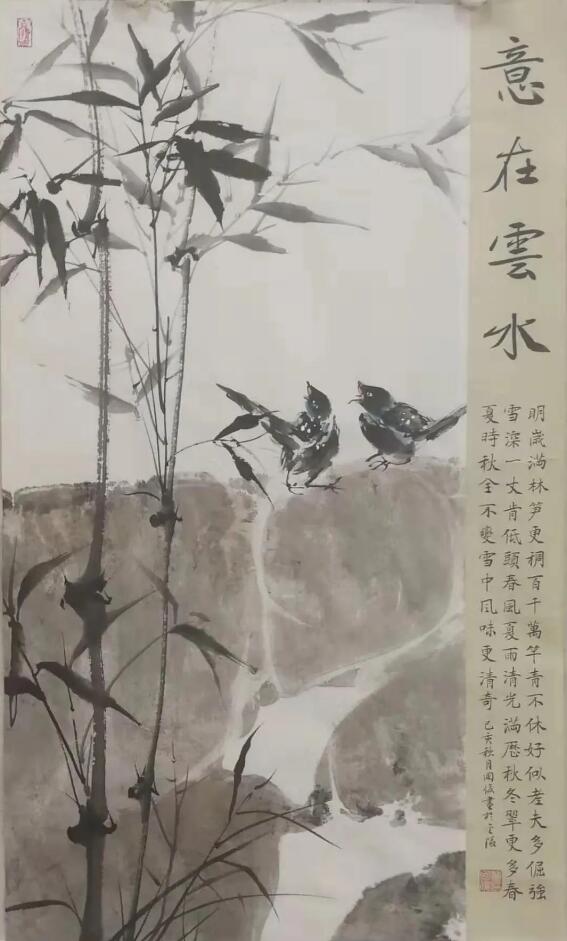 意在雲水
明歲滿林笋更稠百千萬竿青不休好似老夫多倔強
雪深一丈肯低頭春風夏雨清光滿歷秋冬翠更多春
夏時秋全不變雪中風味更清奇 己亥秋月